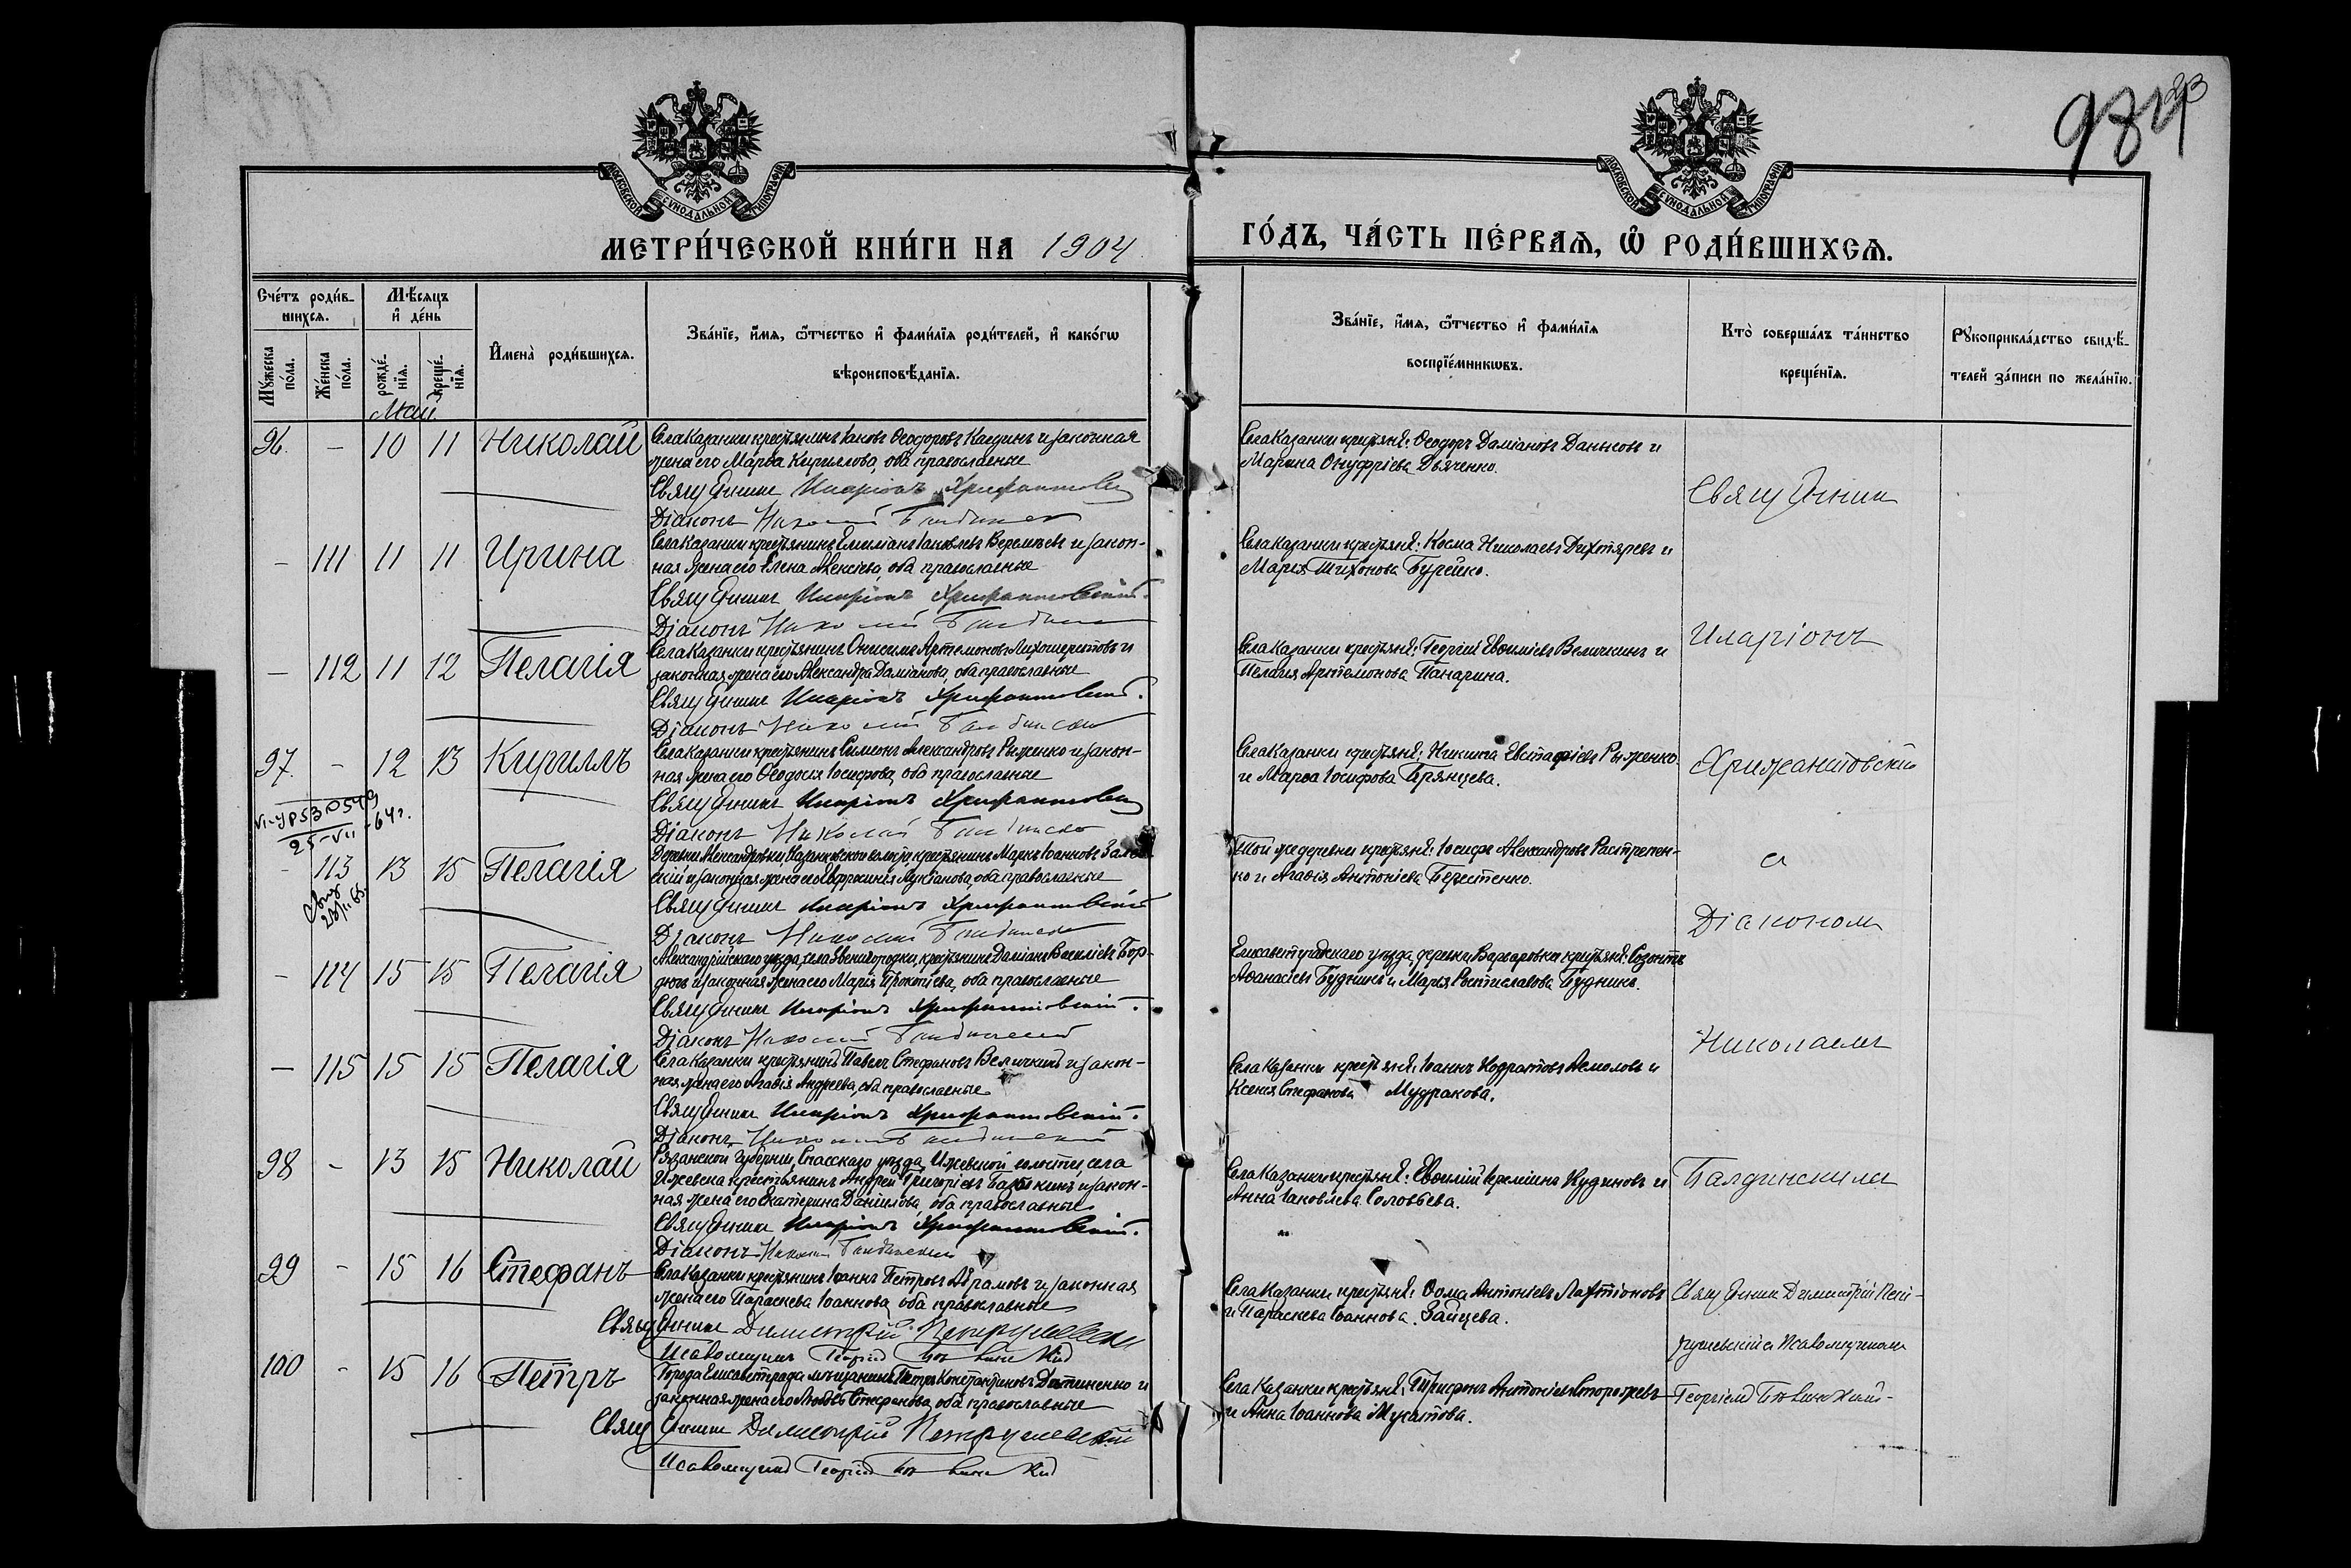 984
23
МОСКОВСКОЙ СѴНОДАЛЬНОЙ ТИПОГРАФІИ
МОСКОВСКОЙ СѴНОДАЛЬНОЙ ТИПОГРАФІИ
МЕТРИ́ЧЕСКОЙ КНИ́ГИ НА 1904
ГО́ДЪ, ЧА́СТЬ ПЕ́РВАѦ, Ѡ҆ РОДИ́ВШИХСѦ.
Сче́тъ роди́в-
шихсѧ.
Мѣ́сѧцъ
и҆ де́нь
Мꙋ́жеска по́ла.
Же́нска по́ла.
рожде́-
нїѧ.
креще́-
нїѧ.
И҆мена̀ роди́вшихсѧ.
Зва́нїе, и҆́мѧ, ѻ҆́тчество и҆ фами́лїѧ роди́телей, и҆ како́гѡ
вѣроисповѣ́данїѧ.
Зва́нїе, и҆́мѧ, ѻ҆́тчество и҆ фами́лїѧ
воспрїе́мникѡвъ.
Кто̀ соверша́лъ та́инство
креще́нїѧ.
Рꙋкоприкла́дство свидѣ́-
телей за́писи по жела́нїю.
Май
96. - 10 11 Николай
Села Казанки крестьянинъ Іаковъ Ѳеодоровъ Кладинъ и законная
жена его Марѳа Кириллова, оба православные
Священникъ Иларіонъ Хрисантовскій
Діаконъ Николай Балдинскій
Села Казанки крестьяне: Ѳеодоръ Даміановъ Даньковъ и
Марина Онуфріева Дьяченко.
- 111 11 11 Ирина
Села Казанки крестьянинъ Емиліанъ Іаковлевъ Веремѣевъ и закон-
ная жена его Елена Алексѣева, оба православные
Священникъ Иларіонъ Хрисантовскій.
Діаконъ Николай Балдинскій
Села Казанки крестьяне: Косма Николаевъ Дихтяревъ и
Марья Тихонова Бурейко.
- 112 11 12 Пелагія
Села Казанки крестьянинъ Онисимъ Артемоновъ Лихошерстовъ и
законная жена его Александра Даміанова, оба православные
Священникъ Иларіонъ Хрисантовскій.
Діаконъ Николай Балдинскій
Села Казанки крестьяне: Георгій Евѳиміевъ Величкинъ и
Пелагія Артемонова Панарина.
97. - 12 13 Кириллъ
Села Казанки крестьянинъ Симеонъ Александровъ Рыженко и закон-
ная жена его Ѳеодосія Іосифова, оба православные
Священникъ Иларіонъ Хрисантовскій
Діаконъ Николай Балдинскій
Села Казанки крестьяне: Никита Евстафіевъ Рыженко
и Марѳа Іосифова Брянцева.
VI-УР530549
25-VII-64г.
- 113 13 15 Пелагія
Деревни Александровки, Казанковской волости, крестьянинъ Маркъ Іоанновъ
и законная жена его Евфросинія Лукіанова, оба православные
Священникъ Иларіонъ Хрисантовскій
Діаконъ Николай Балдинскій
Той же деревни крестьяне: Іосифъ Александровъ Растрепен-
но и Агафія Антоніева Берестенко.
- 114 15 15 Пелагія
Александрійскаго уѣзда, села Звенигородки, крестьянинъ Даміанъ Василіевъ Бор-
дюгъ и законная жена его Марія Прокопіева, оба православные
Священникъ Иларіонъ Хрисантовскій.
Діаконъ Николай Балдинскій
Елисаветградскаго уѣзда, деревни Варваровки крестьяне: Созонтъ
Аѳанасіевъ Будникъ и Марья Ростиславова Будникъ.
- 115 15 15 Пелагія
Села Казанки крестьянинъ Павелъ Стефановъ Величкинъ и закон-
ная жена его Агафія Андреева, оба православные
Священникъ Иларіонъ Хрисантовскій.
Діаконъ Николай Балдинскій
Села Казанки крестьяне: Іоаннъ Кодратовъ и
Ксенія Стефанова Мудракова.
98 - 13 15 Николай
Рязанской губерніи, Спасскаго уѣзда, Ижевской волости, села
Ижевска крестьянинъ Андрей Григоріевъ и закон-
ная жена его Екатерина Даніилова, оба православные
Священникъ Иларіонъ Хрисантовскій.
Діаконъ Николай Балдинскій
Села Казанки крестьяне: Евѳимій Кудиновъ и
Анна Іаковлева Соловьева.
Священник
Иларіонъ
Хрисантовскій
с
Діакономъ
Николаемъ
Балдинскимъ
99 - 15 16 Стефанъ
Села Казанки крестьянинъ Іоаннъ Петровъ Абрамовъ и законная
жена его Параскева Іоаннова, оба православные
Священникъ Димитрій Петрушевскій
Псаломщикъ Георгій
Села Казанки крестьяне: Ѳома Антоніевъ Лактіоновъ
и Параскева Іоаннова Зайцева.
Священникъ Димитрій Пет-
рушевскій съ Псаломщикомъ
100 - 15 16 Петръ
Города Елисаветграда мѣщанинъ Петръ Константиновъ и
законная жена его Любовь Стефанова, оба православные
Священникъ Димитрій Петрушевскій
Псаломщикъ Георгій
Села Казанки крестьяне: Трифонъ Антоніевъ Сторожевъ
и Анна Іоаннова Мухатова.
Георгіемъ